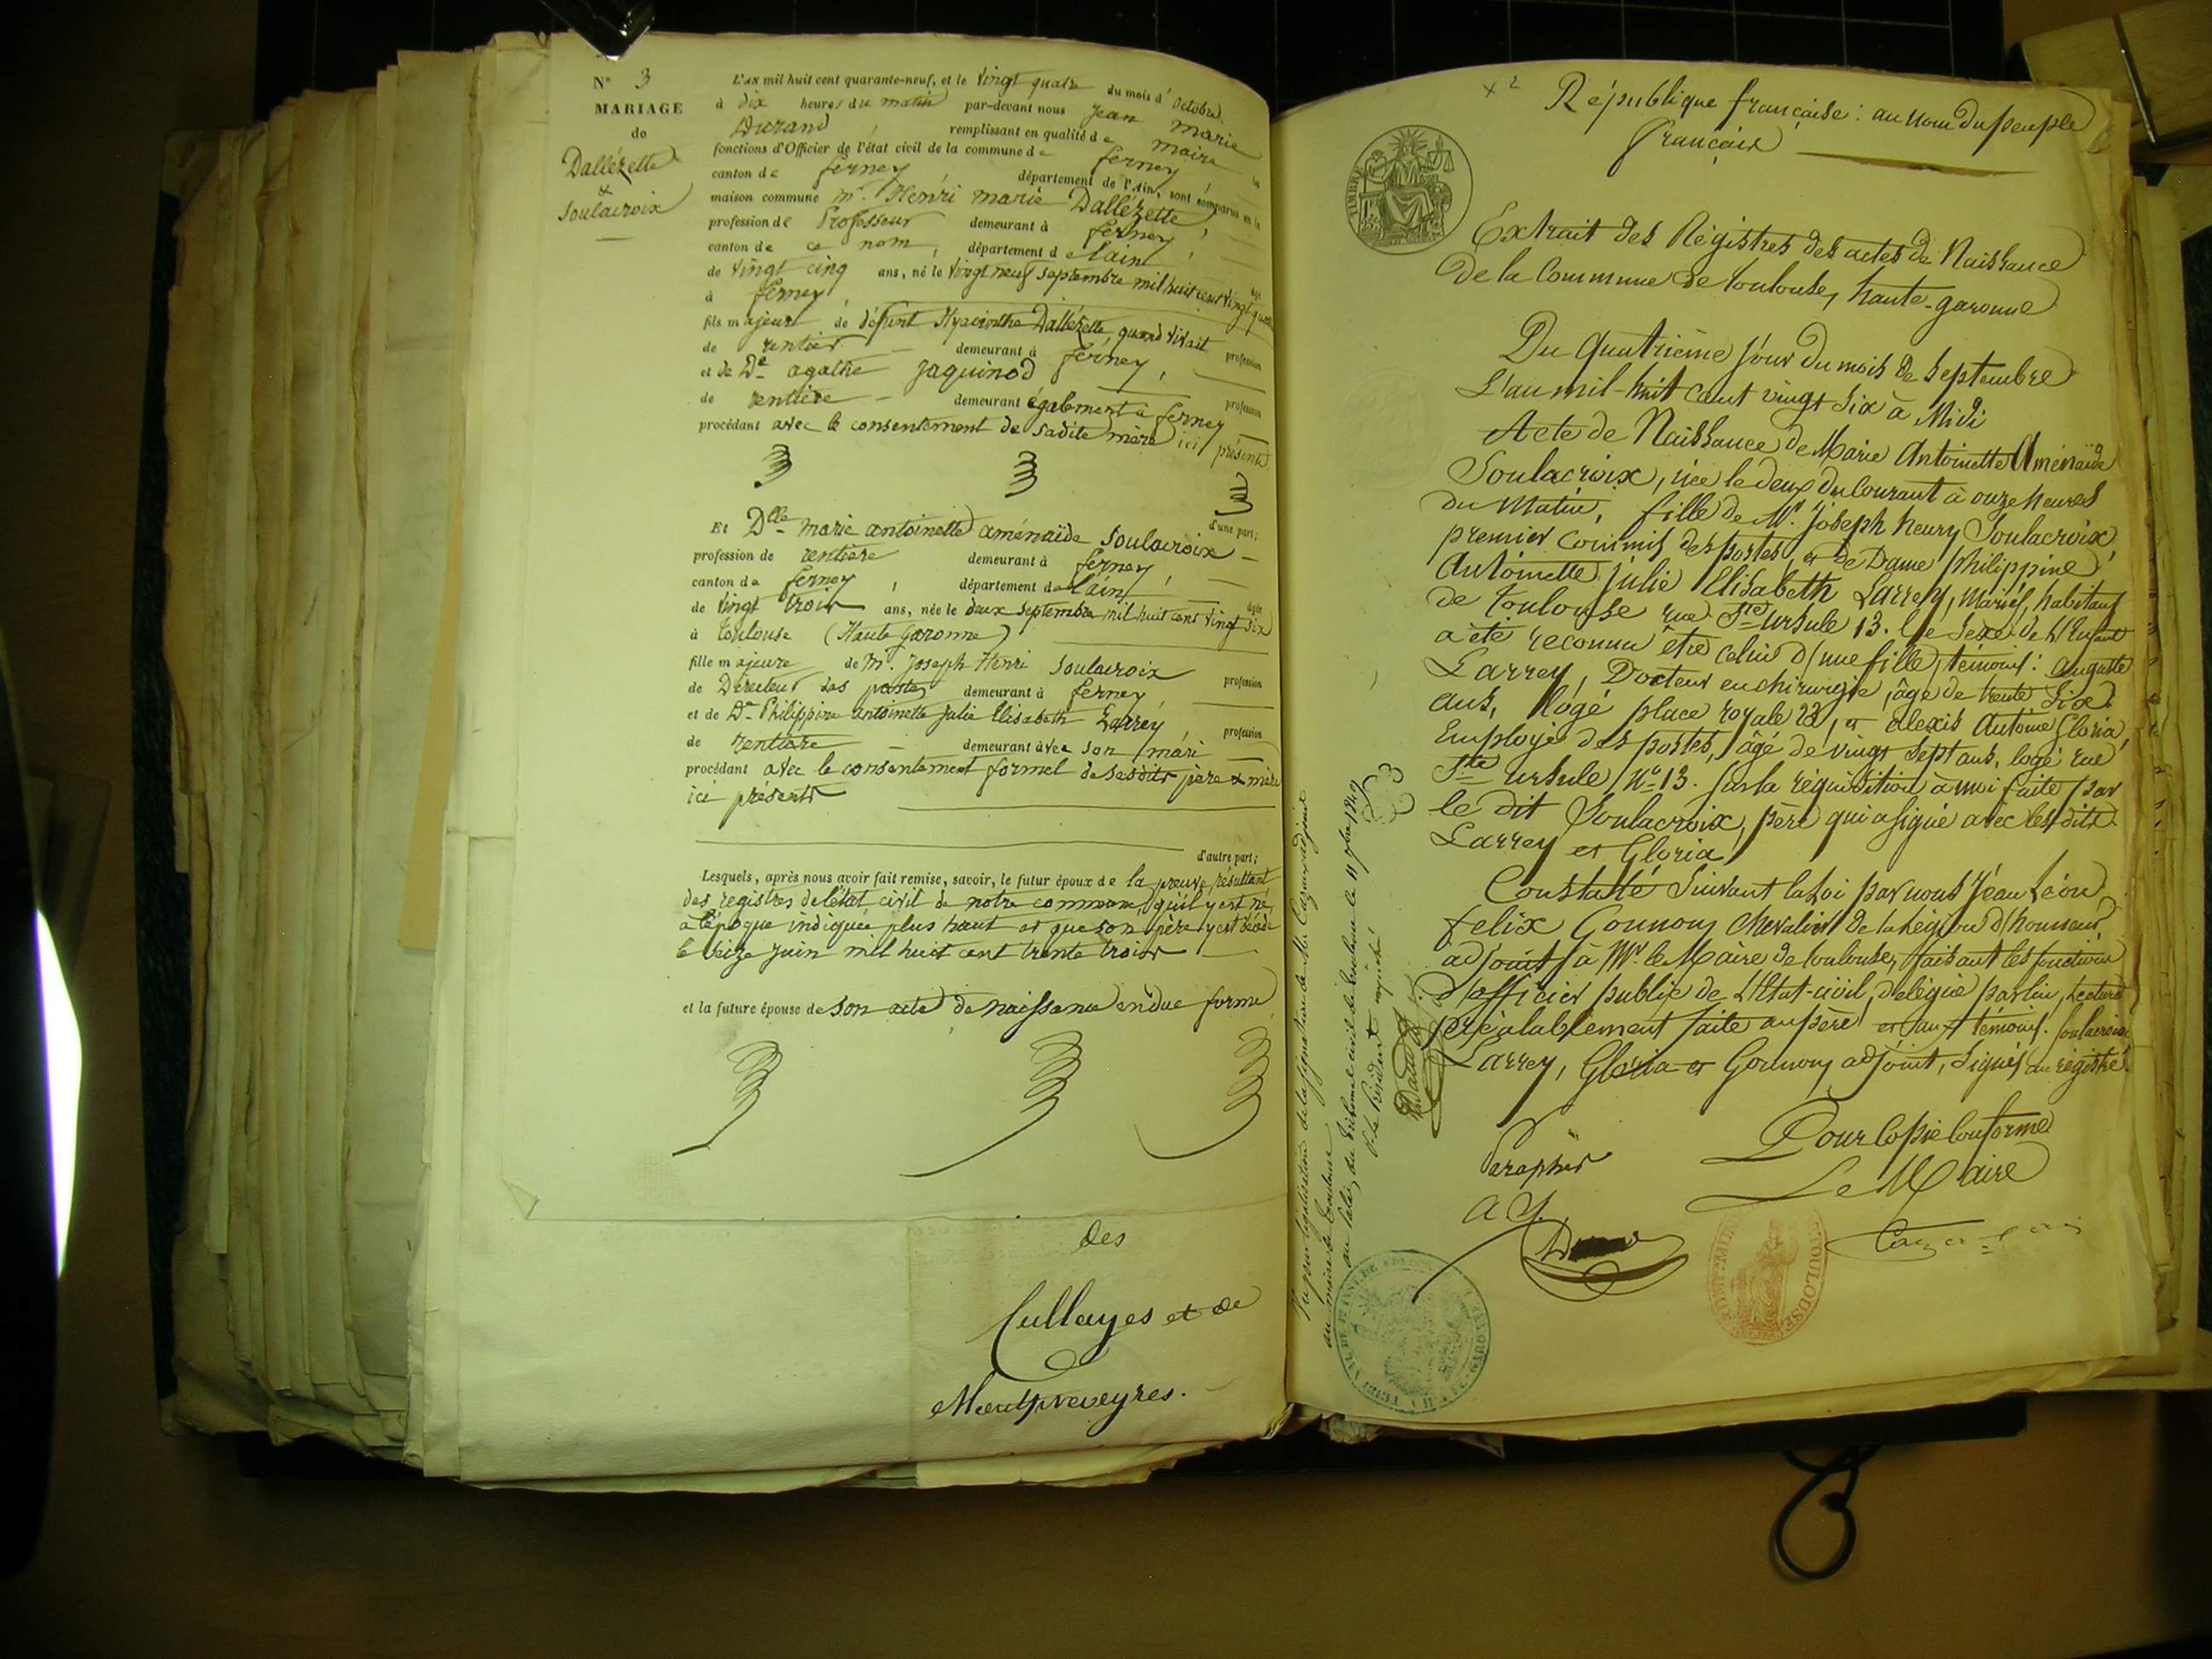 N° 3
MARIAGE
de
Dallézette
&
Soulacroix
L'AN mil huit cent quarante-neuf, et le vingt quatre du mois d'octobre
à dix heures du matin par-devant nous Jean Marie
Durand remplissant en qualité de maire les
fonctions d'Officier de l'état civil de la commune de ferney
canton de ferney département de l'Ain, sont comparus en la
maison commune mr. Henri marie Dallézette
profession de Professeur demeurant à ferney
canton de ce nom, département de lain
de vingt cinq ans, né le vingt neuf septembre mil huit cent vingt quatre
à ferney
fils majeur de défunt Hyacinthe Dallézette quand vivait profession
de rentier demeurant à ferney,
et de De agathe Jaquinod profession
de rentière demeurant également à ferney
procédant avec le consentement de sadite mère ici présente
d'une part;
Et Dlle marie antoinette aménaïde Soulacroix
profession de rentière demeurant à ferney
canton de ferney, département de lain, agée
de vingt trois ans, née le deux septembre mil huit cent vingt six
à toulouse (Haute garonne)
fille majeure de mr. Joseph Henri Soulacroix profession
de Directeur des postes demeurant à ferney
et de De Philippine antoinette Julie Elisabeth Larréy profession
de rentière demeurant avec son mari
procédant avec le consentement formel de sesdits père & mère
ici présents
d'autre part;
Lesquels, après nous avoir fait remise, savoir, le futur époux de la preuve, résultant
des registres de l'état civil de notre commune, qu'il y est né
à l'époque indiquée plus haut et que son père y est décédé
le seize juin mil huit cent trente trois
et la future épouse de son acte de naissance en due forme
des
Cullayes et de
Montpreveyres.
x 2
République française: au nom du peuple
français
TIMBRE
Extrait des Régistres des actes de Naissance
De la Commune de toulouse, haute-garonne
Du quatrième jour du mois de Septembre
L'an mil-huit cent vingt six à Midi
Acte de Naissance de Marie Antoinette Aménaïde
Soulacroix, née le deux du Courant à onze heures
du Matin, fille de Mr. Joseph henry Soulacroix,
premier Commis des postes, et de Dame Philippine
Antoinette Julie Elisabeth Larrey, Mariés, habitans
de toulouse rue Ste Ursule 13. Le Sexe de L'Enfant
a été reconnu être celui d'une fille, témoins: auguste
Larrey, Docteur en chirurgie, âgé de trente Six
ans, logé place royale 23, et alexis Antoine Gloria,
Employé des postes, âgé de vingt sept ans, logé rue
Ste Ursule No 13. Sur la réquisition à moi faite par
le dit Soulacroix, père qui a signé avec les dits
Larrey et Gloria
Constaté Suivant la Loi par nous Jean Léon
felix Gounon, Chevalier de la Légion d'honneur,
adjoint à Mr. le Maire de toulouse, faisant les fonctions
d'officier public de L'Etat-civil, délégué par lui, Lecture
préalablement faite au père et aux témoins. Soulacroix,
Larrey, Gloria et Gounon, adjoint, Signés au régistre.
Pour Copie Conforme
Le Maire
Paraphé
Vu pour légalisation de la signature de Mr. Cazaux adjoint
au maire de toulouse
au palais, du tribunal civil de toulouse le 11 7bre 1849
P. le Président empêché
TOULOUSE